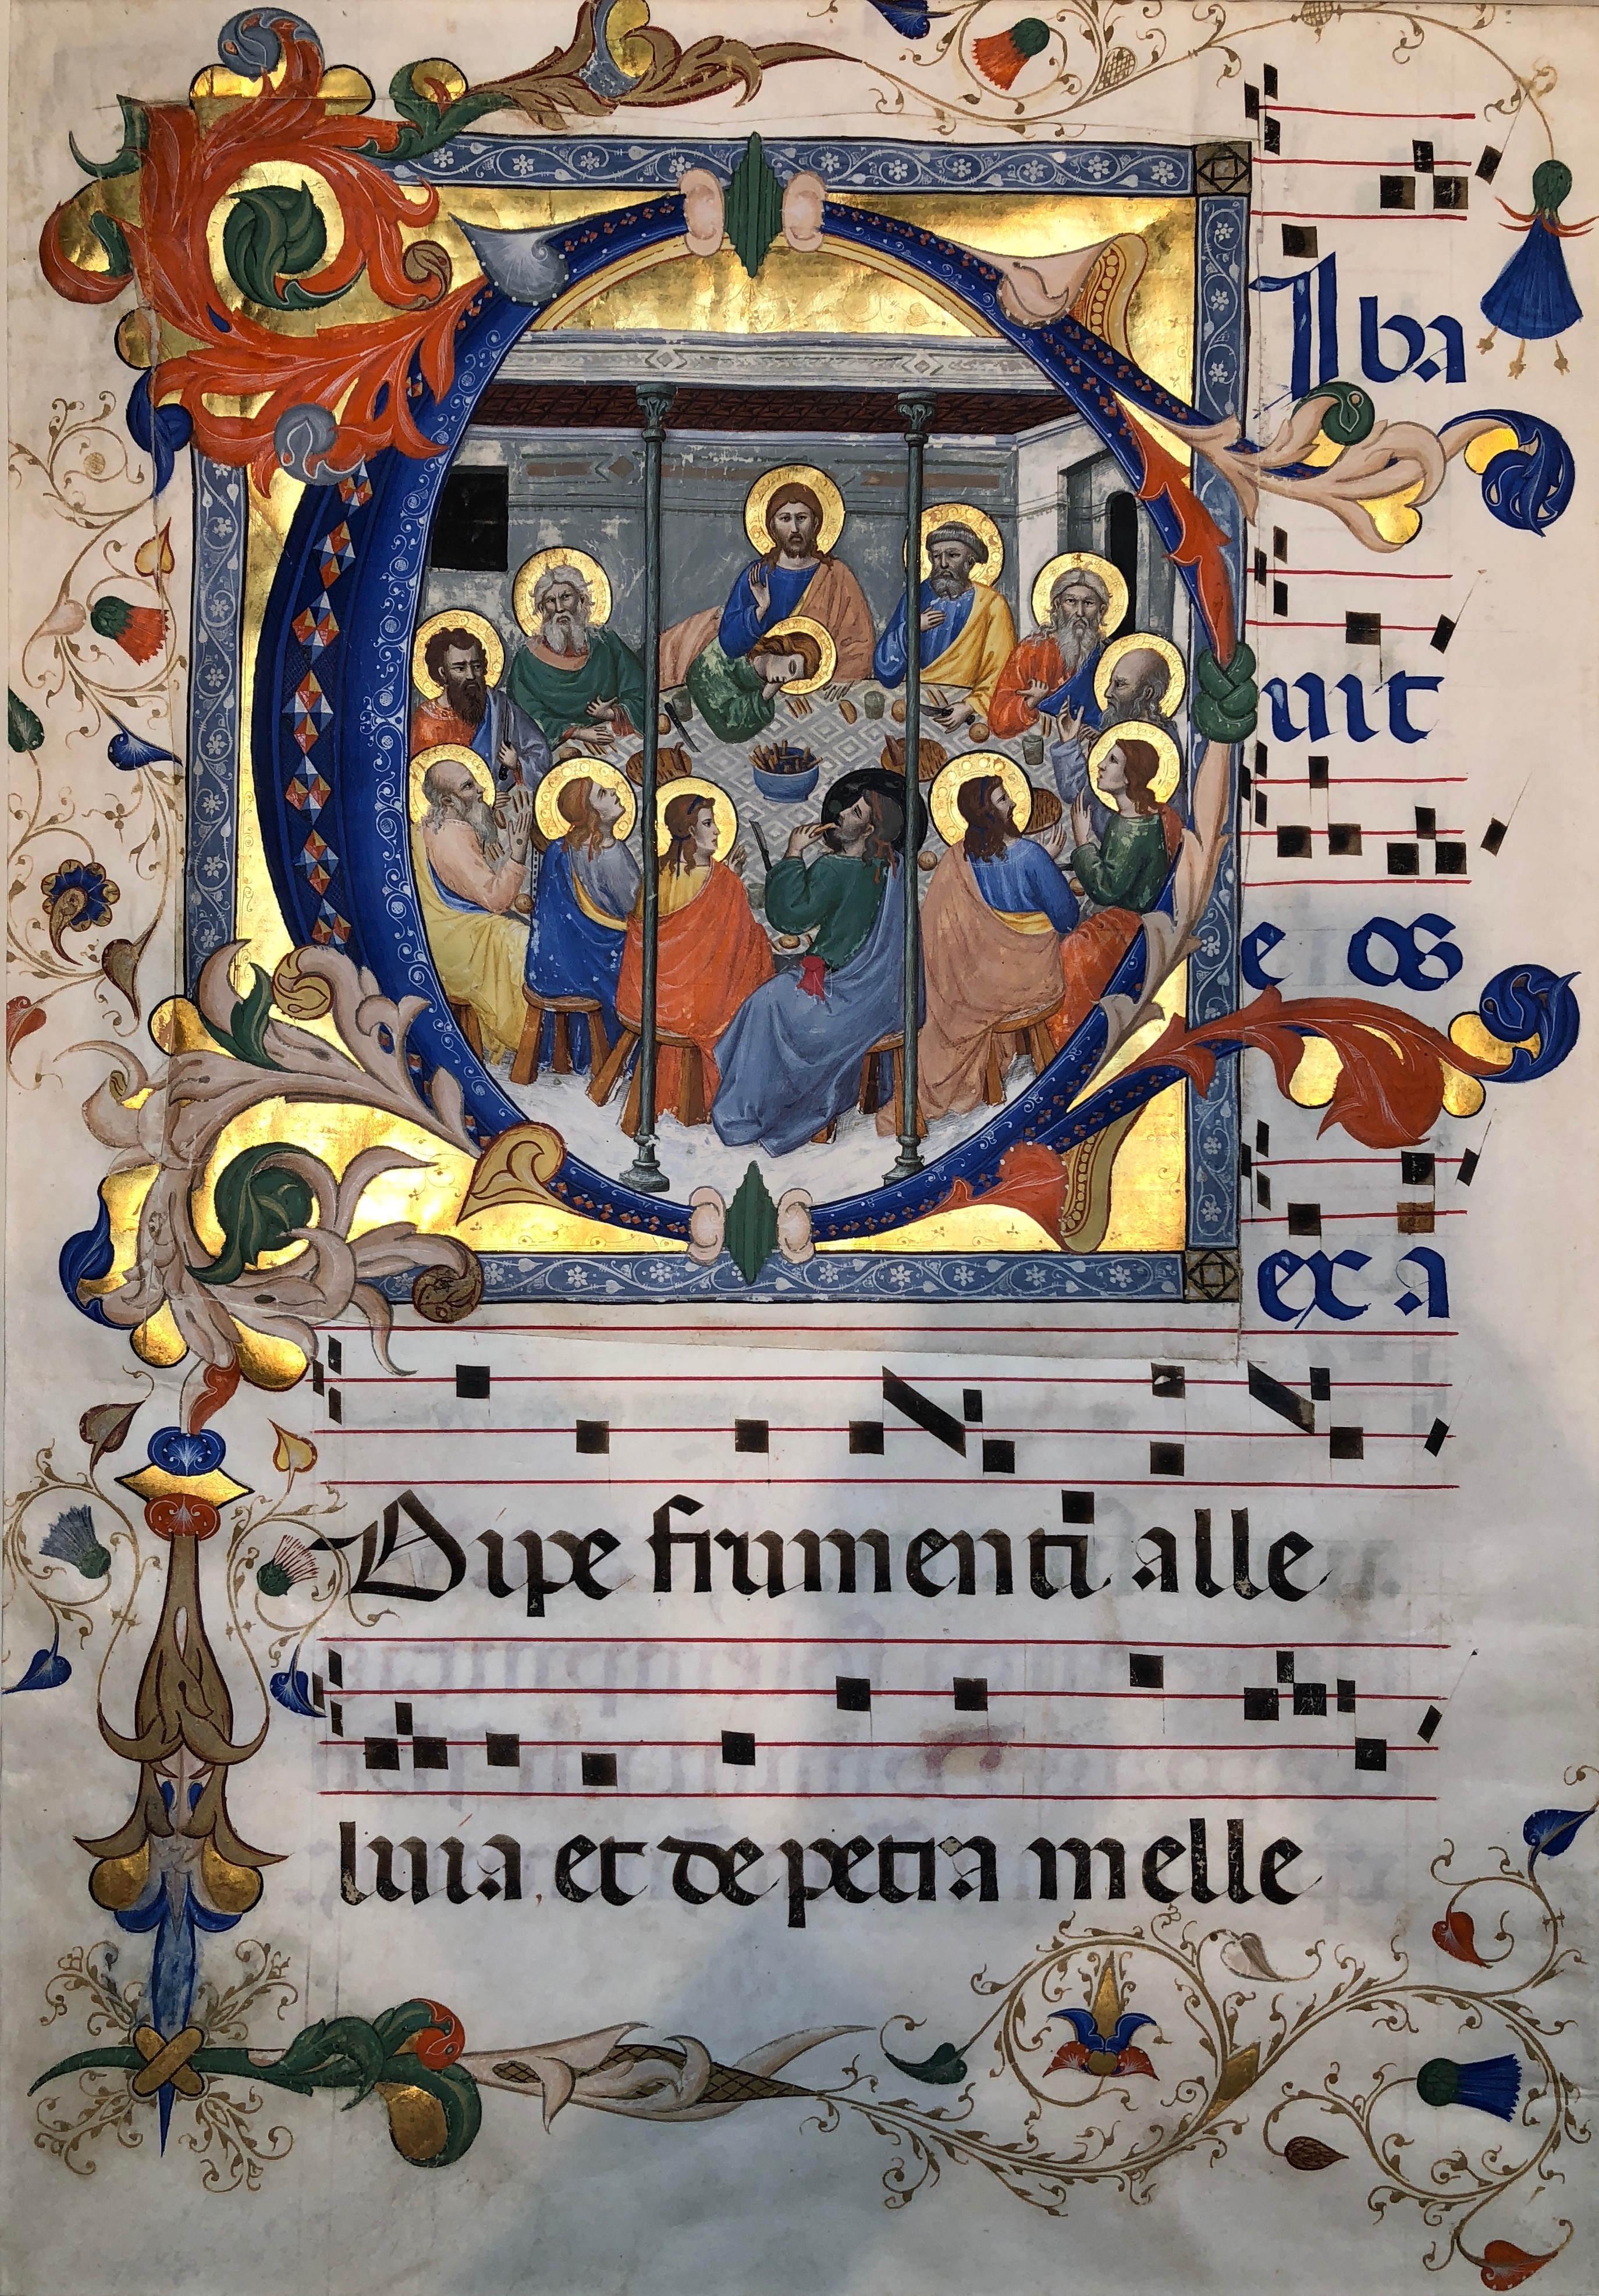 CIba
uit
e os
ex a
Dipe frumenti alle
luia et de petra melle